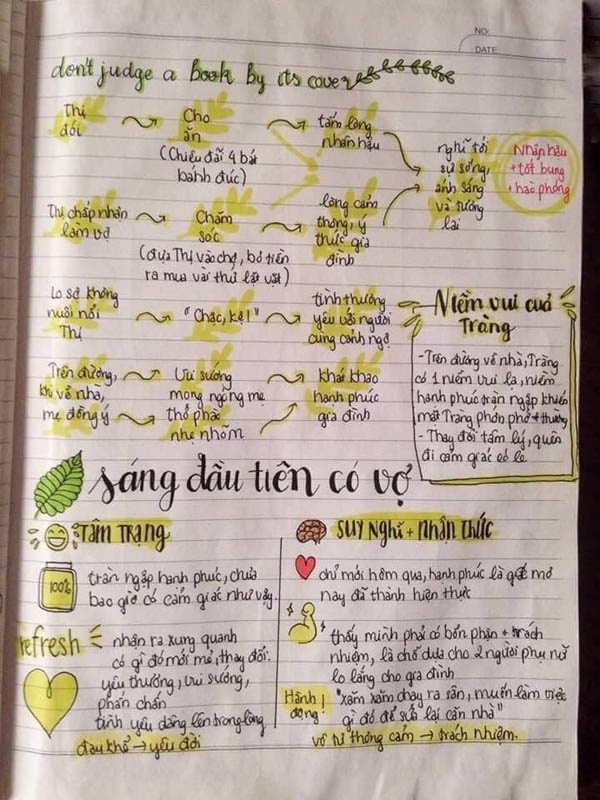 NO:
DATE:
don't judge a book by its cover
Thị
đói
Cho
ăn
(Chiêu đãi 4 bát
bánh đúc)
tấm lòng
nhân hậu
Thị chấp nhận
làm vợ
Chăm
sóc
(đưa Thị vào chợ, bỏ tiền
ra mua vài thứ lặt vặt)
lòng cảm
thông, ý
thức gia
đình
nghĩ tới
sự sống,
ánh sáng
và tương
lai
Nhân hậu
+ tốt bụng
+ hào phóng
Lo sợ không
nuôi nổi
Thị
"Chậc, kệ!"
tình thương
yêu với người
cùng cảnh ngộ
Trên đường,
khi về nhà,
mẹ đồng ý
Vui sướng
mong ngóng mẹ
thở phào
nhẹ nhõm
khát khao
hạnh phúc
gia đình
Niềm vui của
Tràng
- Trên đường về nhà, Tràng
có 1 niềm vui lạ, niềm
hạnh phúc tràn ngập khiến
mặt Tràng phớn phở # thường
- Thay đổi tâm lý, quên
đi cảm giác
sáng đầu tiên có vợ
Tâm Trạng
100%
tràn ngập hạnh phúc, chưa
bao giờ có cảm giác như vậy
refresh
nhận ra xung quanh
có gì đó mới mẻ, thay đổi.
yêu thương, vui sướng,
phấn chấn
tình yêu dâng lên trong lòng
đau khổ → yêu đời
Suy Nghĩ + nhận thức
chỉ mới hôm qua, hạnh phúc là giấc mơ
nay đã thành hiện thực
thấy mình phải có bổn phận + trách
nhiệm, là chỗ dựa cho 2 người phụ nữ
lo lắng cho gia đình
Hành
động!
"xăm xăm chạy ra sân, muốn làm việc
gì đó để sửa lại căn nhà"
vô tư thông cảm → trách nhiệm.